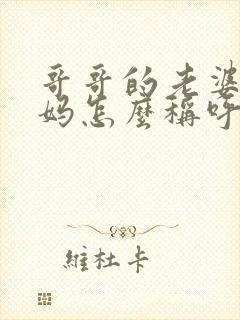 哥哥的老婆
妈怎麼稱呼
維杜卡